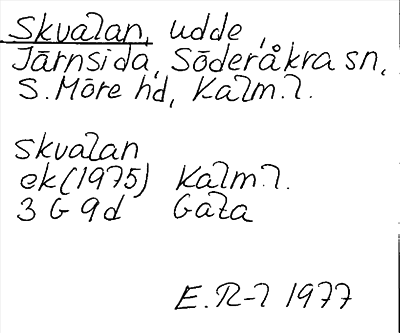 Skvalan, udde,
Järnsida, Söderåkra sn,
S. Möre hd, Kalm. l.
Skvalan
ek (1975) Kalm. l.
3 G 9 d Gata
E. R-l 1977